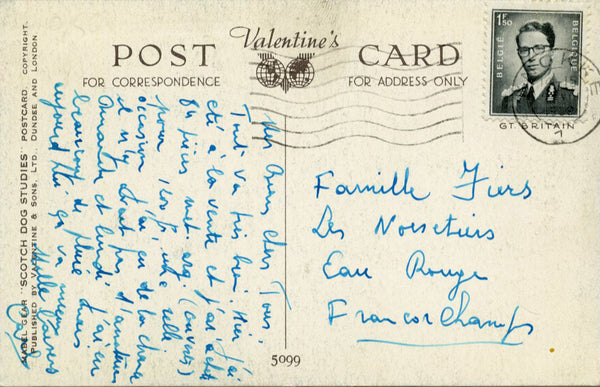 Valentine's
POST CARD
FOR CORRESPONDENCE
FOR ADDRESS ONLY
MABEL GEAR "SCOTCH DOG STUDIES" POSTCARD. COPYRIGHT.
PUBLISHED BY VALENTINE & SONS, LTD. DUNDEE AND LONDON
1F50
BELGIE
BELGIQUE
GT. BRITAIN
chers Tous,
Tout va très bien. Hier j'ai
été à la vente et j'ai acheté
84 pièces met. arg. (couverts)
pour
occasion j'ai eu de la chance
il n'y avait pas d'amateurs
et lundi j'ai eu
beaucoup de pluie
aujourd'hui ça va mieux
Mille baisers
Famille Fiers
Les Noisetiers
Eau Rouge
Francorchamps
5099